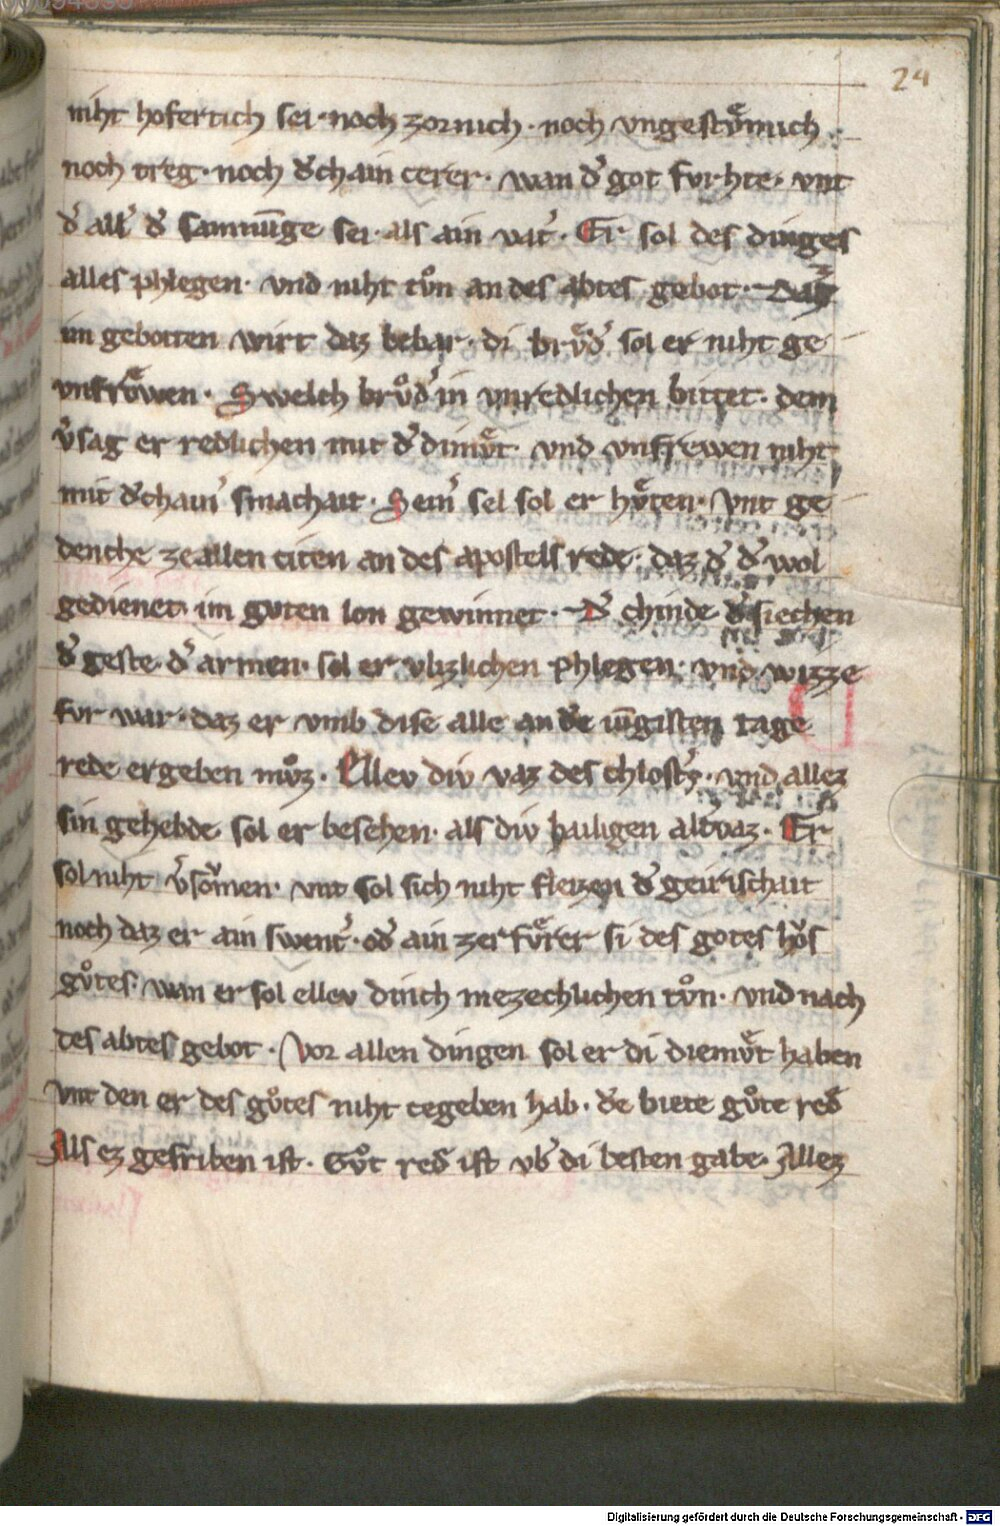 24
niht hofertich sei · noch zornich · noch vngestvͤmich ·
noch treg · noch dʼchain cerer · wan dʼ got fvrhte · vnt
dʼ allʼ dʼ samnūge sei · als ain vatʼ · Er sol des dinges
alles phlegen · vnd niht tvͦn an des abtes gebot · Daz
im gebotten wirt daz behar · di brvͤdʼ sol er niht ge
vnfroͤwen · Swelch brvͦdʼ in vnredlichen bittet · dem
vʼsag er redlichen mit dʼ dimvͤt · vnd vnfrewen niht
mit dʼchainʼ smachait · Seinʼ sel sol er hvͤten · Vnt ge
denche ze allen citen an des apostels rede · daz dʼ dʼ wol
gedienet · im guten lon gewinnet · Dʼ chinde dʼ siechen
dʼ geste · dʼ armen · sol er vlizlichen phlegen · vnd wizze
fvr war · daz er vmb dise alle an dʼe iūgisten tage
rede ergeben mvͦz · Ellev div vaz des chlostʼs · vnd allez
sin gehebde sol er besehen · als div hailigen altvaz · Er
sol niht vʼsoͮmen · vnt sol sich niht fleizen dʼ geitischait
noch daz er ain swentʼ · odʼ ain zerfvͤrer si des gotes hvͦs
gvͦtes · wan er sol ellev dinch mezechlichen tvͦn · vnd nach
des abtes gebot · Vor allen dingen sol er di diemvͤt haben
vnt den er des gvͦtes niht cegeben hab · dʼe biete gvͦte redʼ
Als ez gesriben ist · Gvͦt redʼ ist vbʼ di besten gabe · Allez
Digitalisierung gefördert durch die Deutsche Forschungsgemeinschaft - DFG